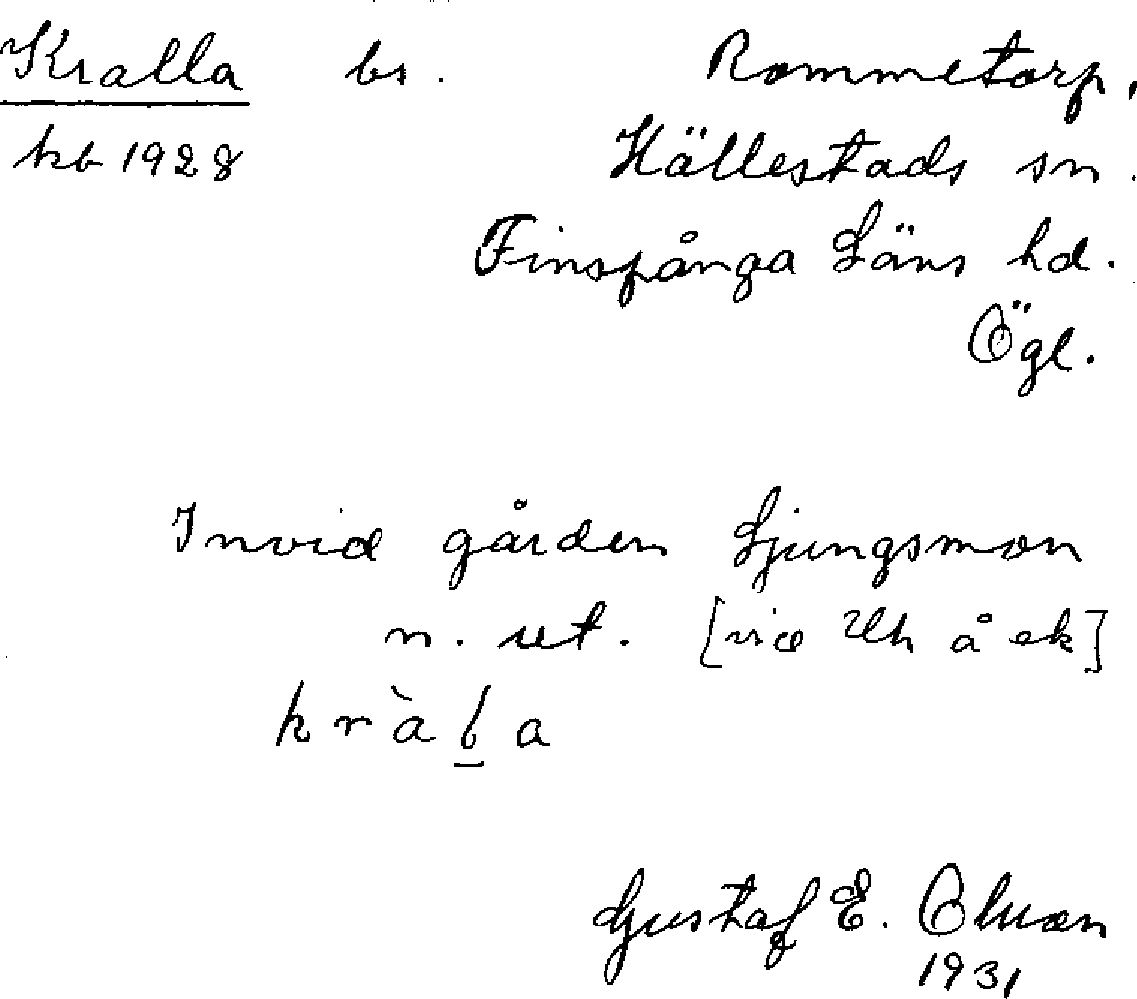 Kralla bs. Rommetorp,
kb 1928 Hällestads sn.
Finspånga Läns hd.
Ögl.
Invid gården Ljungsmon
n. ut. [vid Uh å ek]
kràla
Gustaf E. Olson
1931